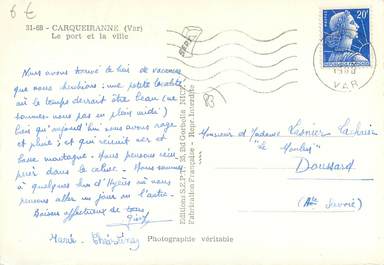 6 €
31-68 - CARQUEIRANNE (Var)
Le port et la ville
Nous avons trouvé le lieu de vacances
que nous cherchions : une petite localité
où le temps devrait être beau (ne
sommes nous pas en plein midi)
bien qu'aujourd'hui nous avons orage
et pluie ; et qui réunit mer et
basse montagne. Nous pensons
dans le calme. Nous sommes
à quelques km d'Hyères où nous
pensons aller un jour ou l'autre.
Baisers affectueux de tous
Marie-Thérèse
Photographie véritable
Editions S.E.P.T. 33, Rue Gorbella NICE
Fabrication Française - Repr. Interdite
SEPT
83
20F
1960
VAR
Monsieur et Madame
"Le Moulin"
Doussard
(Hte Savoie)